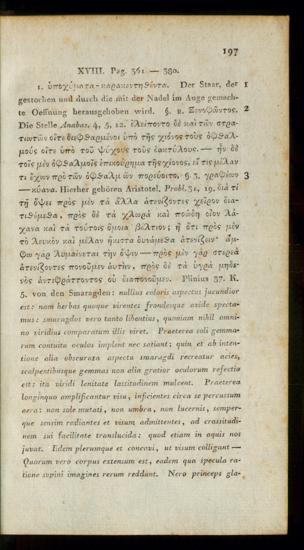 197
XVIII. Pag. 361 — 380.
1. ὑποχύματα-παρακεντηθέντα. Der Staar, der 1
gestochen und durch die mit der Nadel im Auge gemach-
te Oeffnung herausgehoben wird. §. 2. Ξενοφῶντος. 2
Die Stelle Anabas. 4, 5, 12. ἐλείποντο δὲ καὶ τῶν στρα-
τιωτῶν οἵτε διεφθαρμένοι ὑπὸ τῆς χιόνος τοὺς ὀφθαλ-
μοὺς οἵτε ὑπὸ τοῦ ψύχους τοὺς δακτύλους. — ἦν δὲ
τοῖς μὲν ὀφθαλμοῖς ἐπικούρημα τῆς χιόνος, εἴ τις μέλαν
τι ἔχων πρὸ τῶν ὀφθαλμῶν πορεύοιτο. §. 3. γραφέων 3
—κύανα. Hierher gehören Aristotel. Probl. 31, 19. διὰ τί
τῇ ὄψει πρὸς μὲν τὰ ἄλλα ἀτενίζοντες χεῖρον δια-
τιθέμεθα, πρὸς δὲ τὰ χλωρὰ καὶ ποώδη οἷον λά-
χανα καὶ τὰ τούτοις ὅμοια βέλτιον; ἢ ὅτι πρὸς μὲν
τὸ λευκὸν καὶ μέλαν ἥκιστα δυνάμεθα ἀτενίζειν· ἄμ-
φω γὰρ λυμαίνεται τὴν ὄψιν — πρὸς μὲν γὰρ στερεὰ
ἀτενίζοντες πονοῦμεν αὐτὴν, πρὸς δὲ τὰ ὑγρὰ μηδε-
νὸς ἀντιφράττοντος οὐ διαπονοῦμεν. Plinius 37. K.
5. von den Smaragden: nullius coloris aspectus jucundior
est: nam herbas quoque virentes frondesque avide specta-
mus: smaragdos vero tanto libentius, quoniam nihil omni-
no viridius comparatum illis viret. Praeterea soli gemma-
rum contuitu oculos implent nec satiant; quin et ab inten-
tione alia obscurata aspectu smaragdi recreatur acies,
scalpentibusque gemmas non alia gratior oculorum refectio
est: ita viridi lenitate lassitudinem mulcent. Praeterea
longinquo amplificantur visu, inficientes circa se percussum
aera: non sole mutati, non umbra, non lucernis, semper-
que sensim radiantes et visum admittentes, ad crassitudi-
nem sui facilitate translucida: quod etiam in aquis nos
juvat. Iidem plerumque et concavi, ut visum colligant —
Quorum vero corpus extensum est, eadem qua specula ra-
tione supini imagines rerum reddunt. Nero princeps gla-